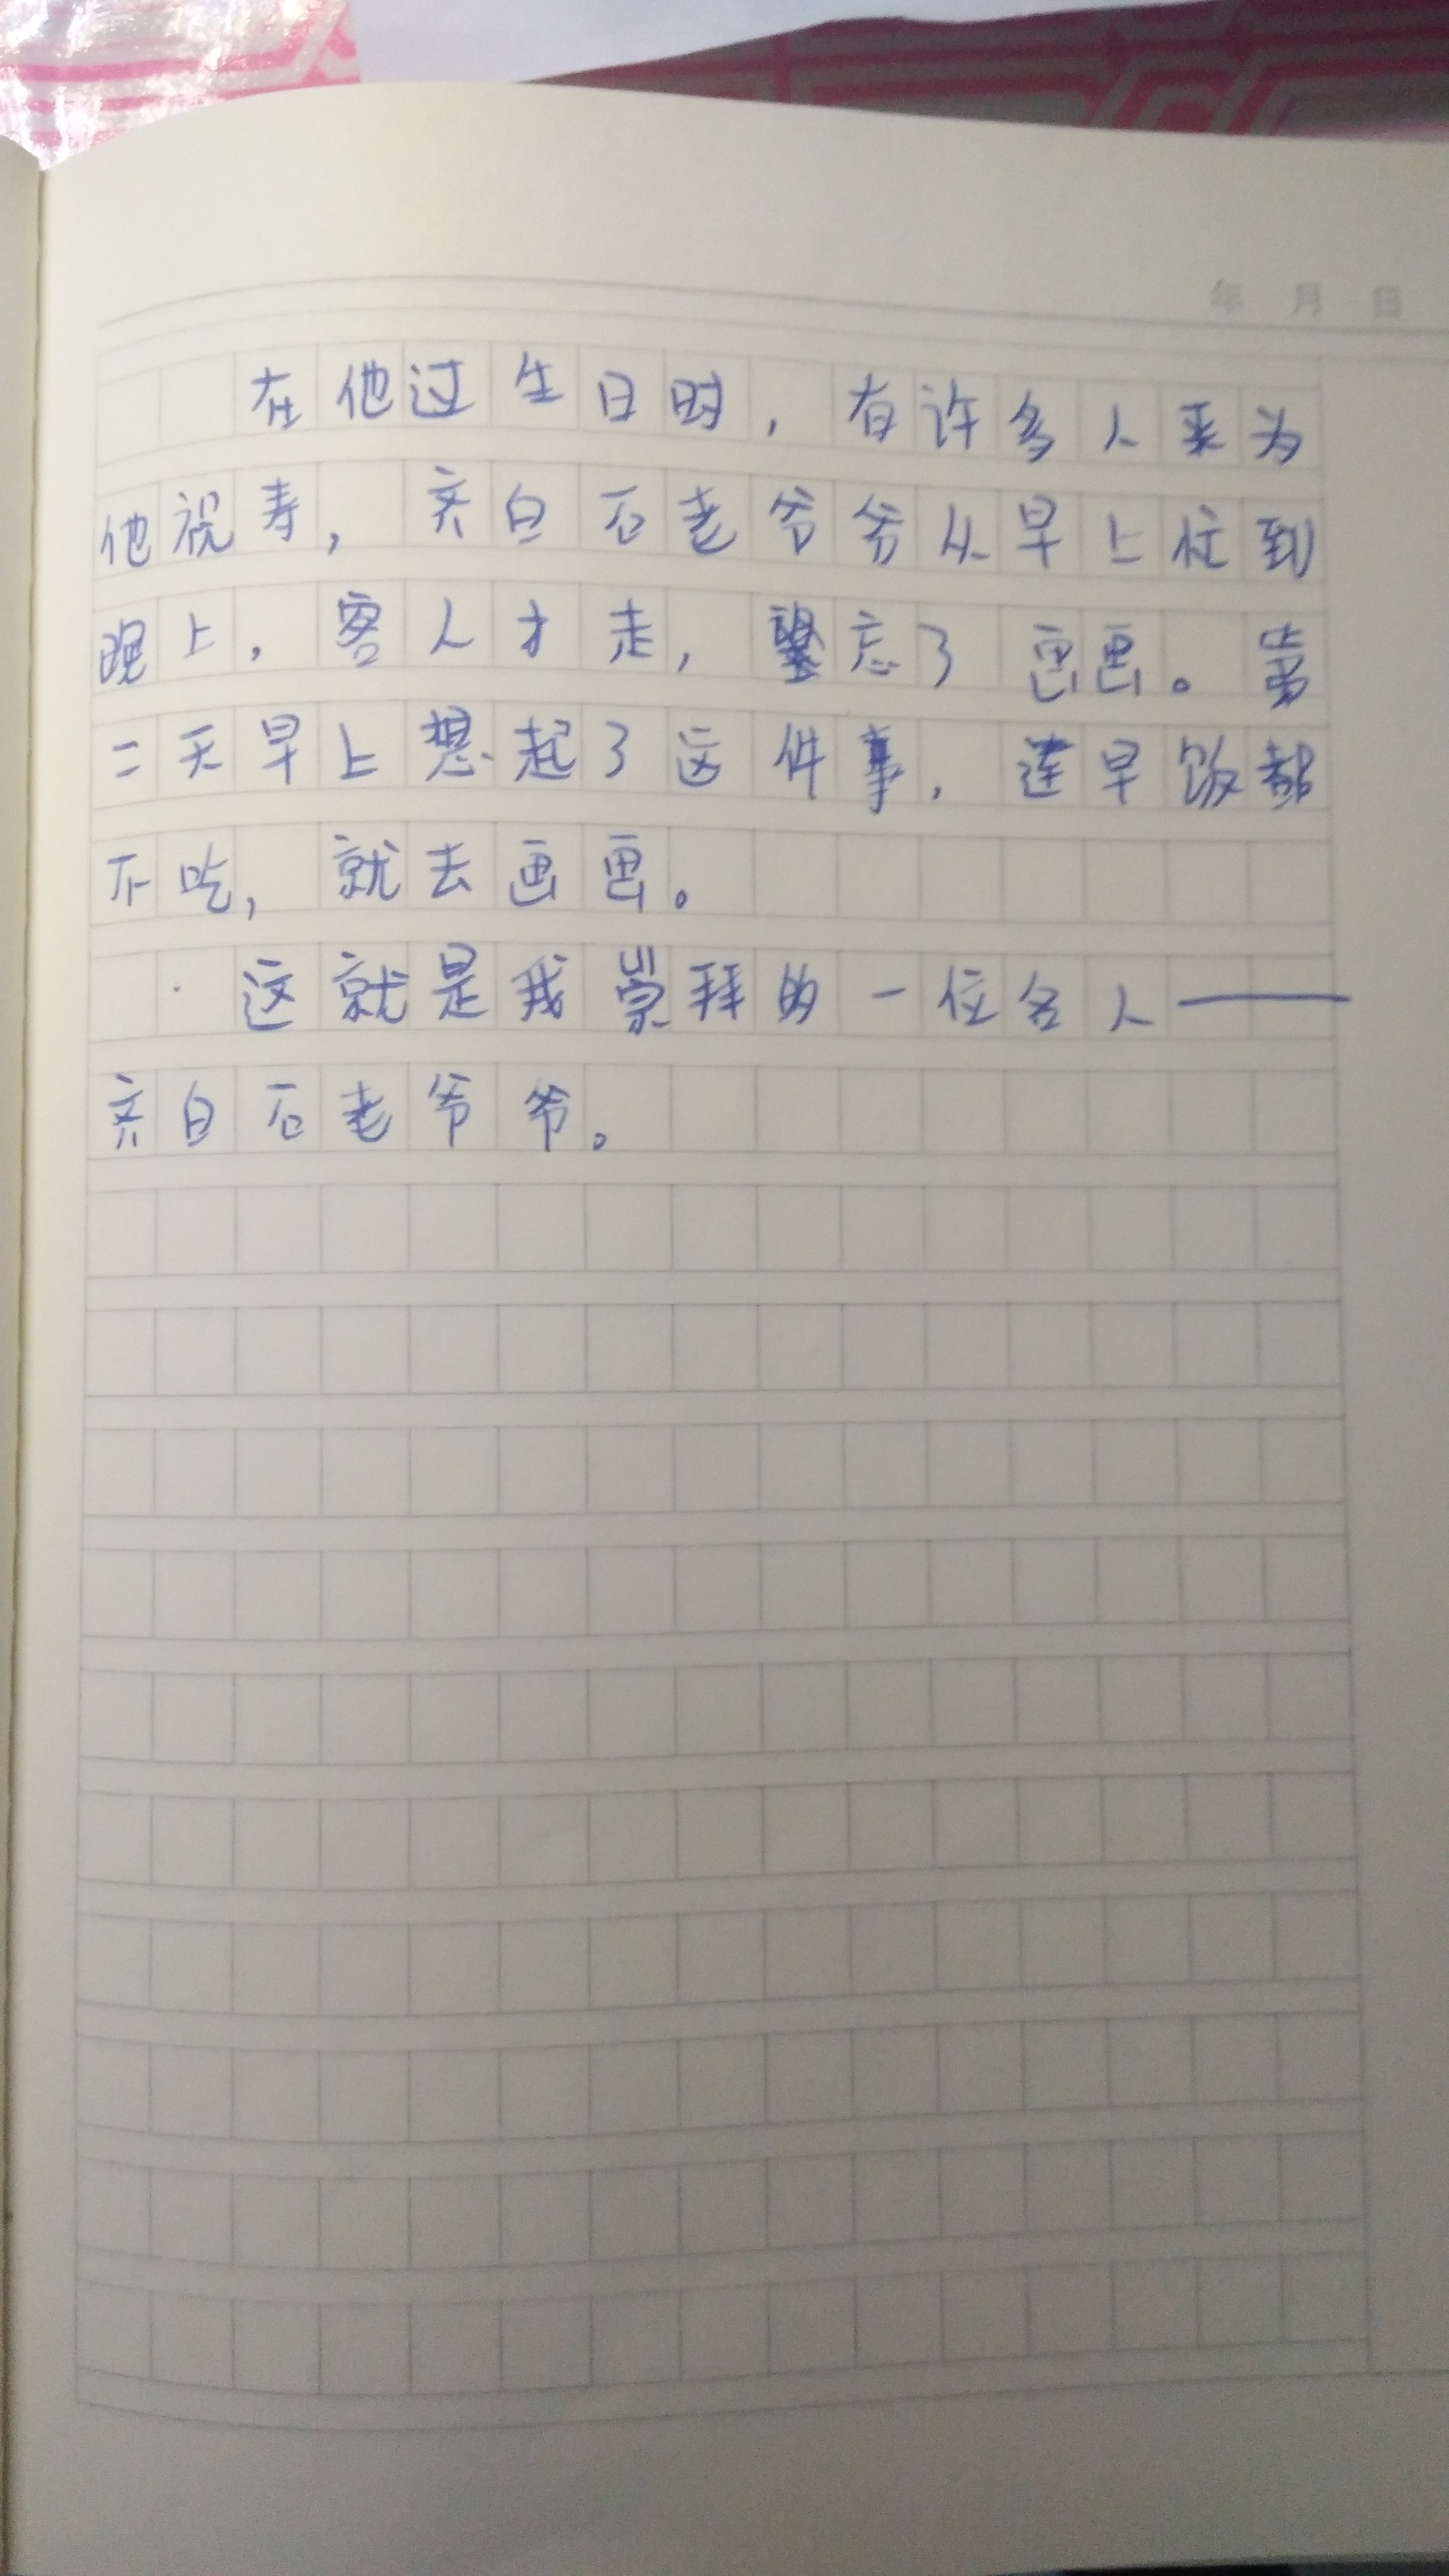 年 月 日
在他过生日时，有许多人来为
他祝寿，齐白石老爷爷从早上忙到
晚上，客人才走，忘了画画。第
二天早上想起了这件事，连早饭都
不吃，就去画画。
这就是我崇拜的一位名人——
齐白石老爷爷。